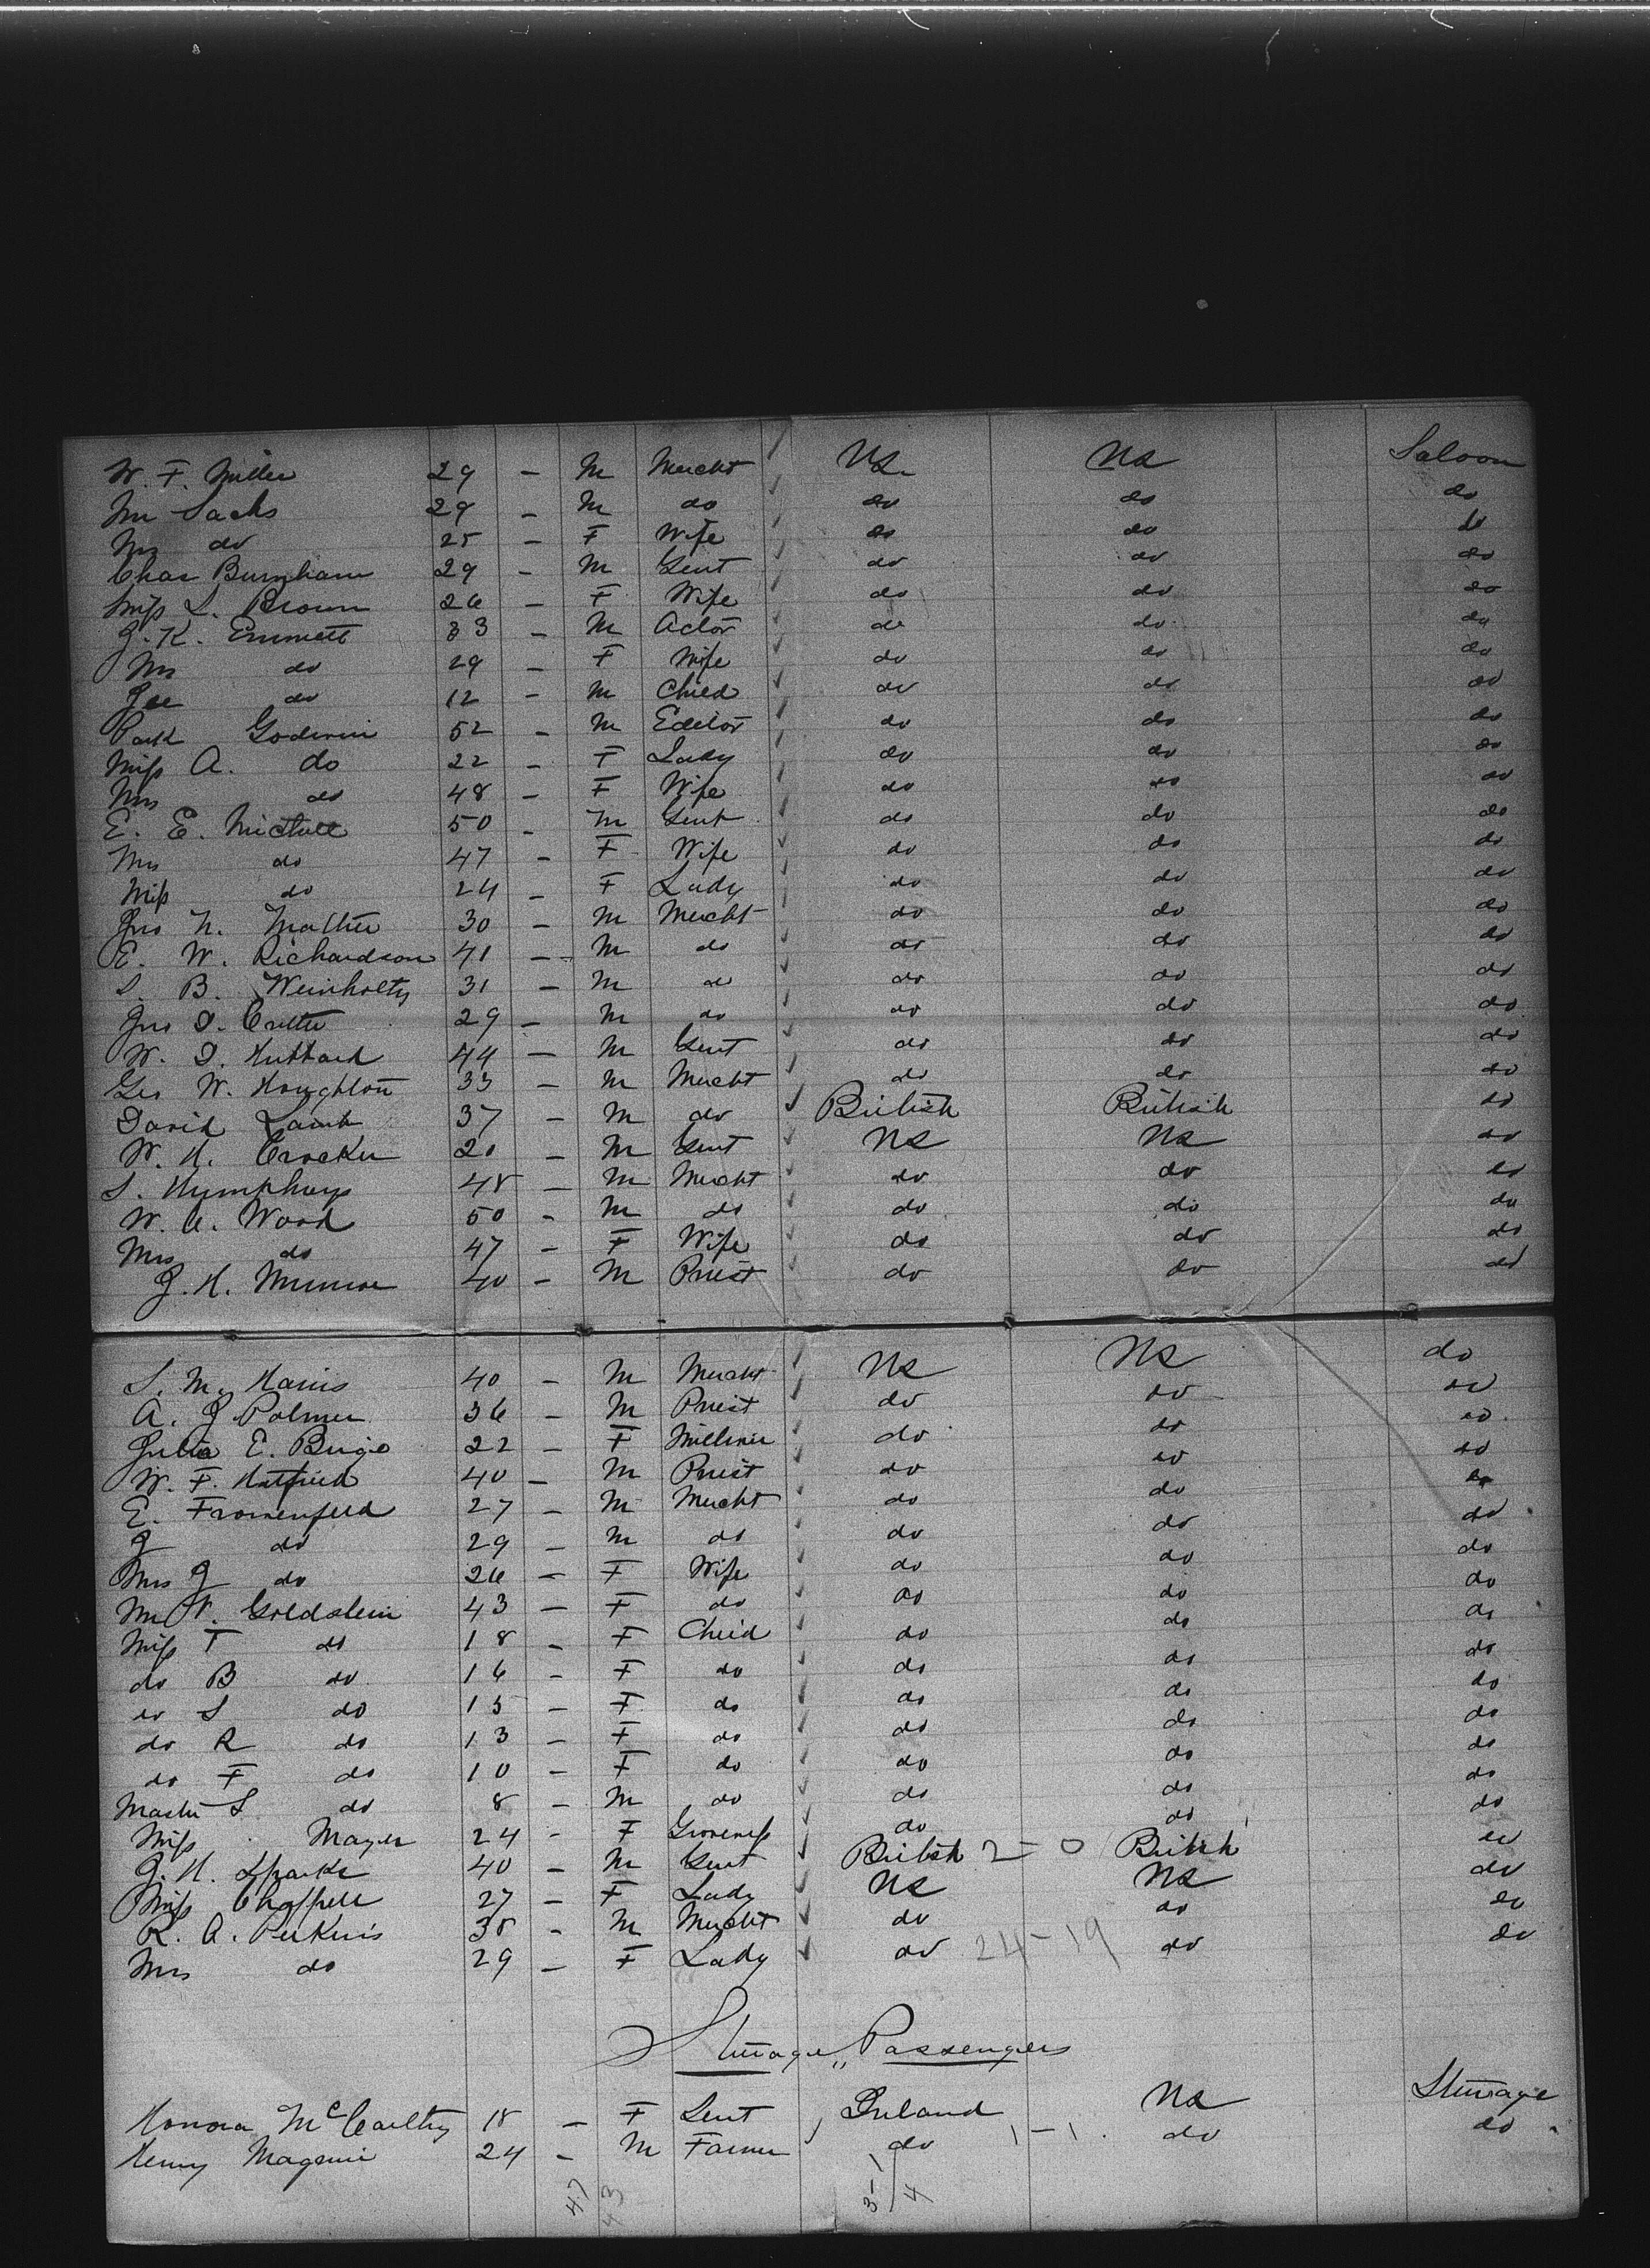 W. F. Miller 29 – M Mercht US US Saloon
Mr Sachs 29 – M do do do do
Mrs do 25 – F Wife do do do
Chas Burnham 29 – M Gent do do do
Miss L. Brown 26 – F Wife do do do
J. K. Emmett 33 – M Actor do do do
Mrs do 29 – F Wife do do do
Jee do 12 – M Child do do do
Park Godwin 52 – M Editor do do do
Miss A. do 22 – F Lady do do do
Mrs do 48 – F Wife do do do
E. E. Mictell 50 – M Gent do do do
Mrs do 47 – F Wife do do do
Miss do 24 – F Lady do do do
Jno N. Mather 30 – M Mercht do do do
E. W. Richardson 41 – M do do do do
S. B. Weinholtz 31 – M do do do do
Jno D. Cutter 29 – M do do do do
W. D. Hubbard 44 – M Gent do do do
Geo W. Houghton 33 – M Mercht do do do
David Lamb 37 – M do British British do
W. H. Crocker 20 – M Gent US US do
S. Humphrys 48 – M Mercht do do do
W. A. Wood 50 – M do do do do
Mrs do 47 – F Wife do do do
J. H. Munroe 40 – M Priest do do do
S. M. Harris 40 – M Mercht US US do
A. J Palmer 36 – M Priest do do do
Julia E. Birge 22 – F Milliner do do do
W. F. Hatfield 40 – M Priest do do do
E. Fromenfeld 27 – M Mercht do do do
J do 29 – M do do do do
Mrs J do 26 – F Wife do do do
Mrs V. Goldstein 43 – F do do do do
Miss T do 18 – F Child do do do
do B do 16 – F do do do do
do S do 15 – F do do do do
do R do 13 – F do do do do
do F do 10 – F do do do do
Master S do 8 – M do do do do
Miss Mayer 24 – F Governess do do do
J. H. Sparks 40 – M Gent British 2 – 0 British do
Miss Chappell 27 – F Lady US US do
R. A. Perkins 38 – M Mercht do do do
Mrs do 29 – F Lady do 24 – 19 do do
Steerage Passengers
Honora McCarthy 18 – F Sert Ireland US Steerage
Henry Magnuir 24 – M Farmer do 1 – 1 do do
47 43